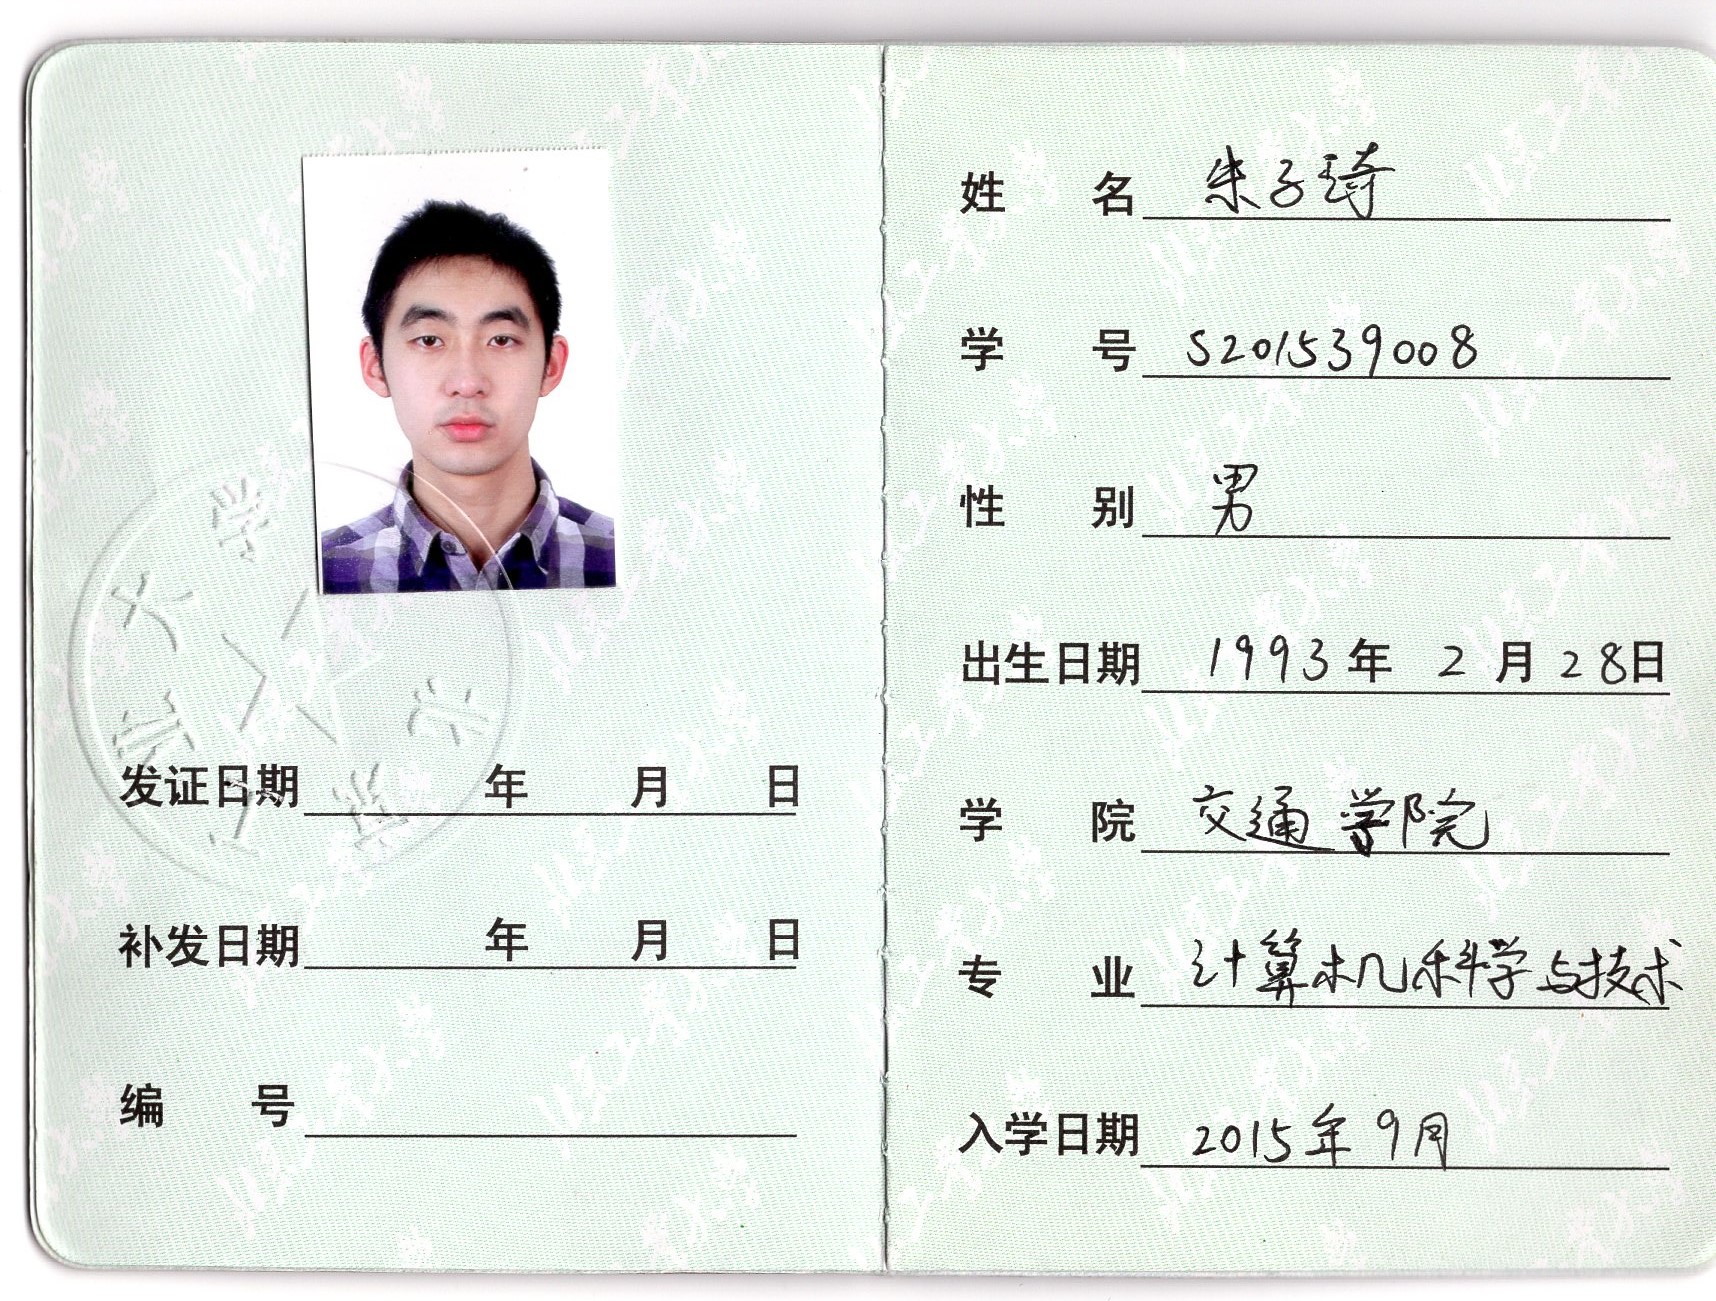 发证日期 年 月 日
补发日期 年 月 日
编号
姓名 朱子琦
学号 S201539008
性别 男
出生日期 1993年2月28日
学院 交通学院
专业 计算机科学与技术
入学日期 2015年9月